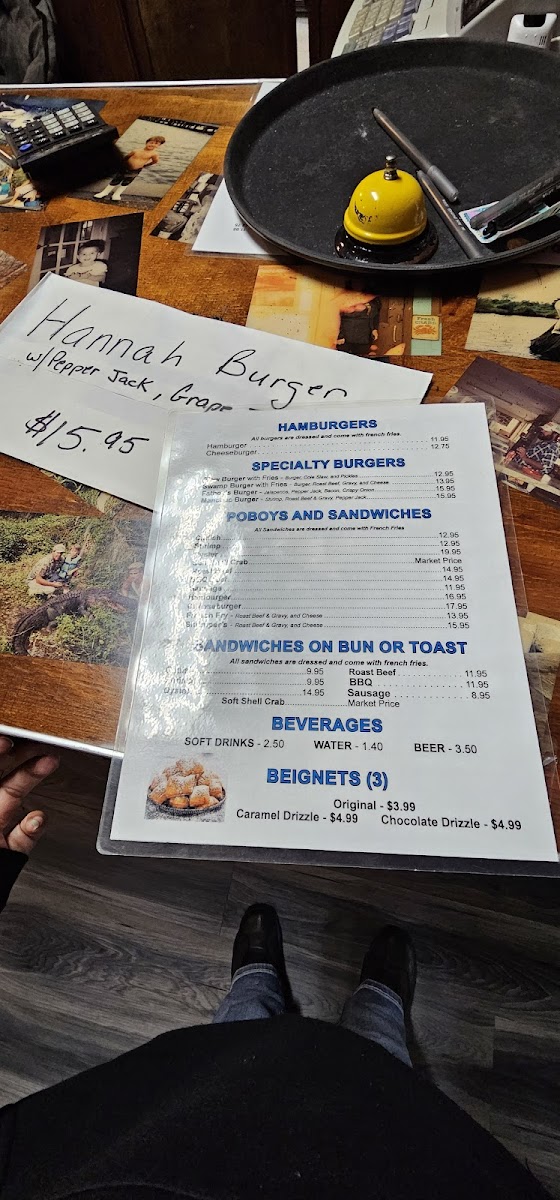 Hannah Burger
w/Pepper Jack, Grape
$15.95
HAMBURGERS
All burgers are dressed and come with french fries.
Hamburger 11.95
Cheeseburger 12.75
SPECIALTY BURGERS
Burger with Fries - Burger, Cole Slaw, and Pickles 12.95
Swamp Burger with Fries - Burger, Roast Beef, Gravy, and Cheese 13.95
Burger - Jalapenos, Pepper Jack, Bacon, Crispy Onion 15.95
Burger - Shrimp, Roast Beef & Gravy, Pepper Jack 15.95
POBOYS AND SANDWICHES
All Sandwiches are dressed and come with French Fries
12.95
Shrimp 12.95
19.95
Crab Market Price
14.95
14.95
11.95
Hamburger 16.95
17.95
French Fry - Roast Beef & Gravy, and Cheese 13.95
- Roast Beef & Gravy, and Cheese 15.95
SANDWICHES ON BUN OR TOAST
All sandwiches are dressed and come with french fries.
9.95 Roast Beef 11.95
9.95 BBQ 11.95
14.95 Sausage 8.95
Soft Shell Crab Market Price
BEVERAGES
SOFT DRINKS - 2.50 WATER - 1.40 BEER - 3.50
BEIGNETS (3)
Original - $3.99
Caramel Drizzle - $4.99 Chocolate Drizzle - $4.99